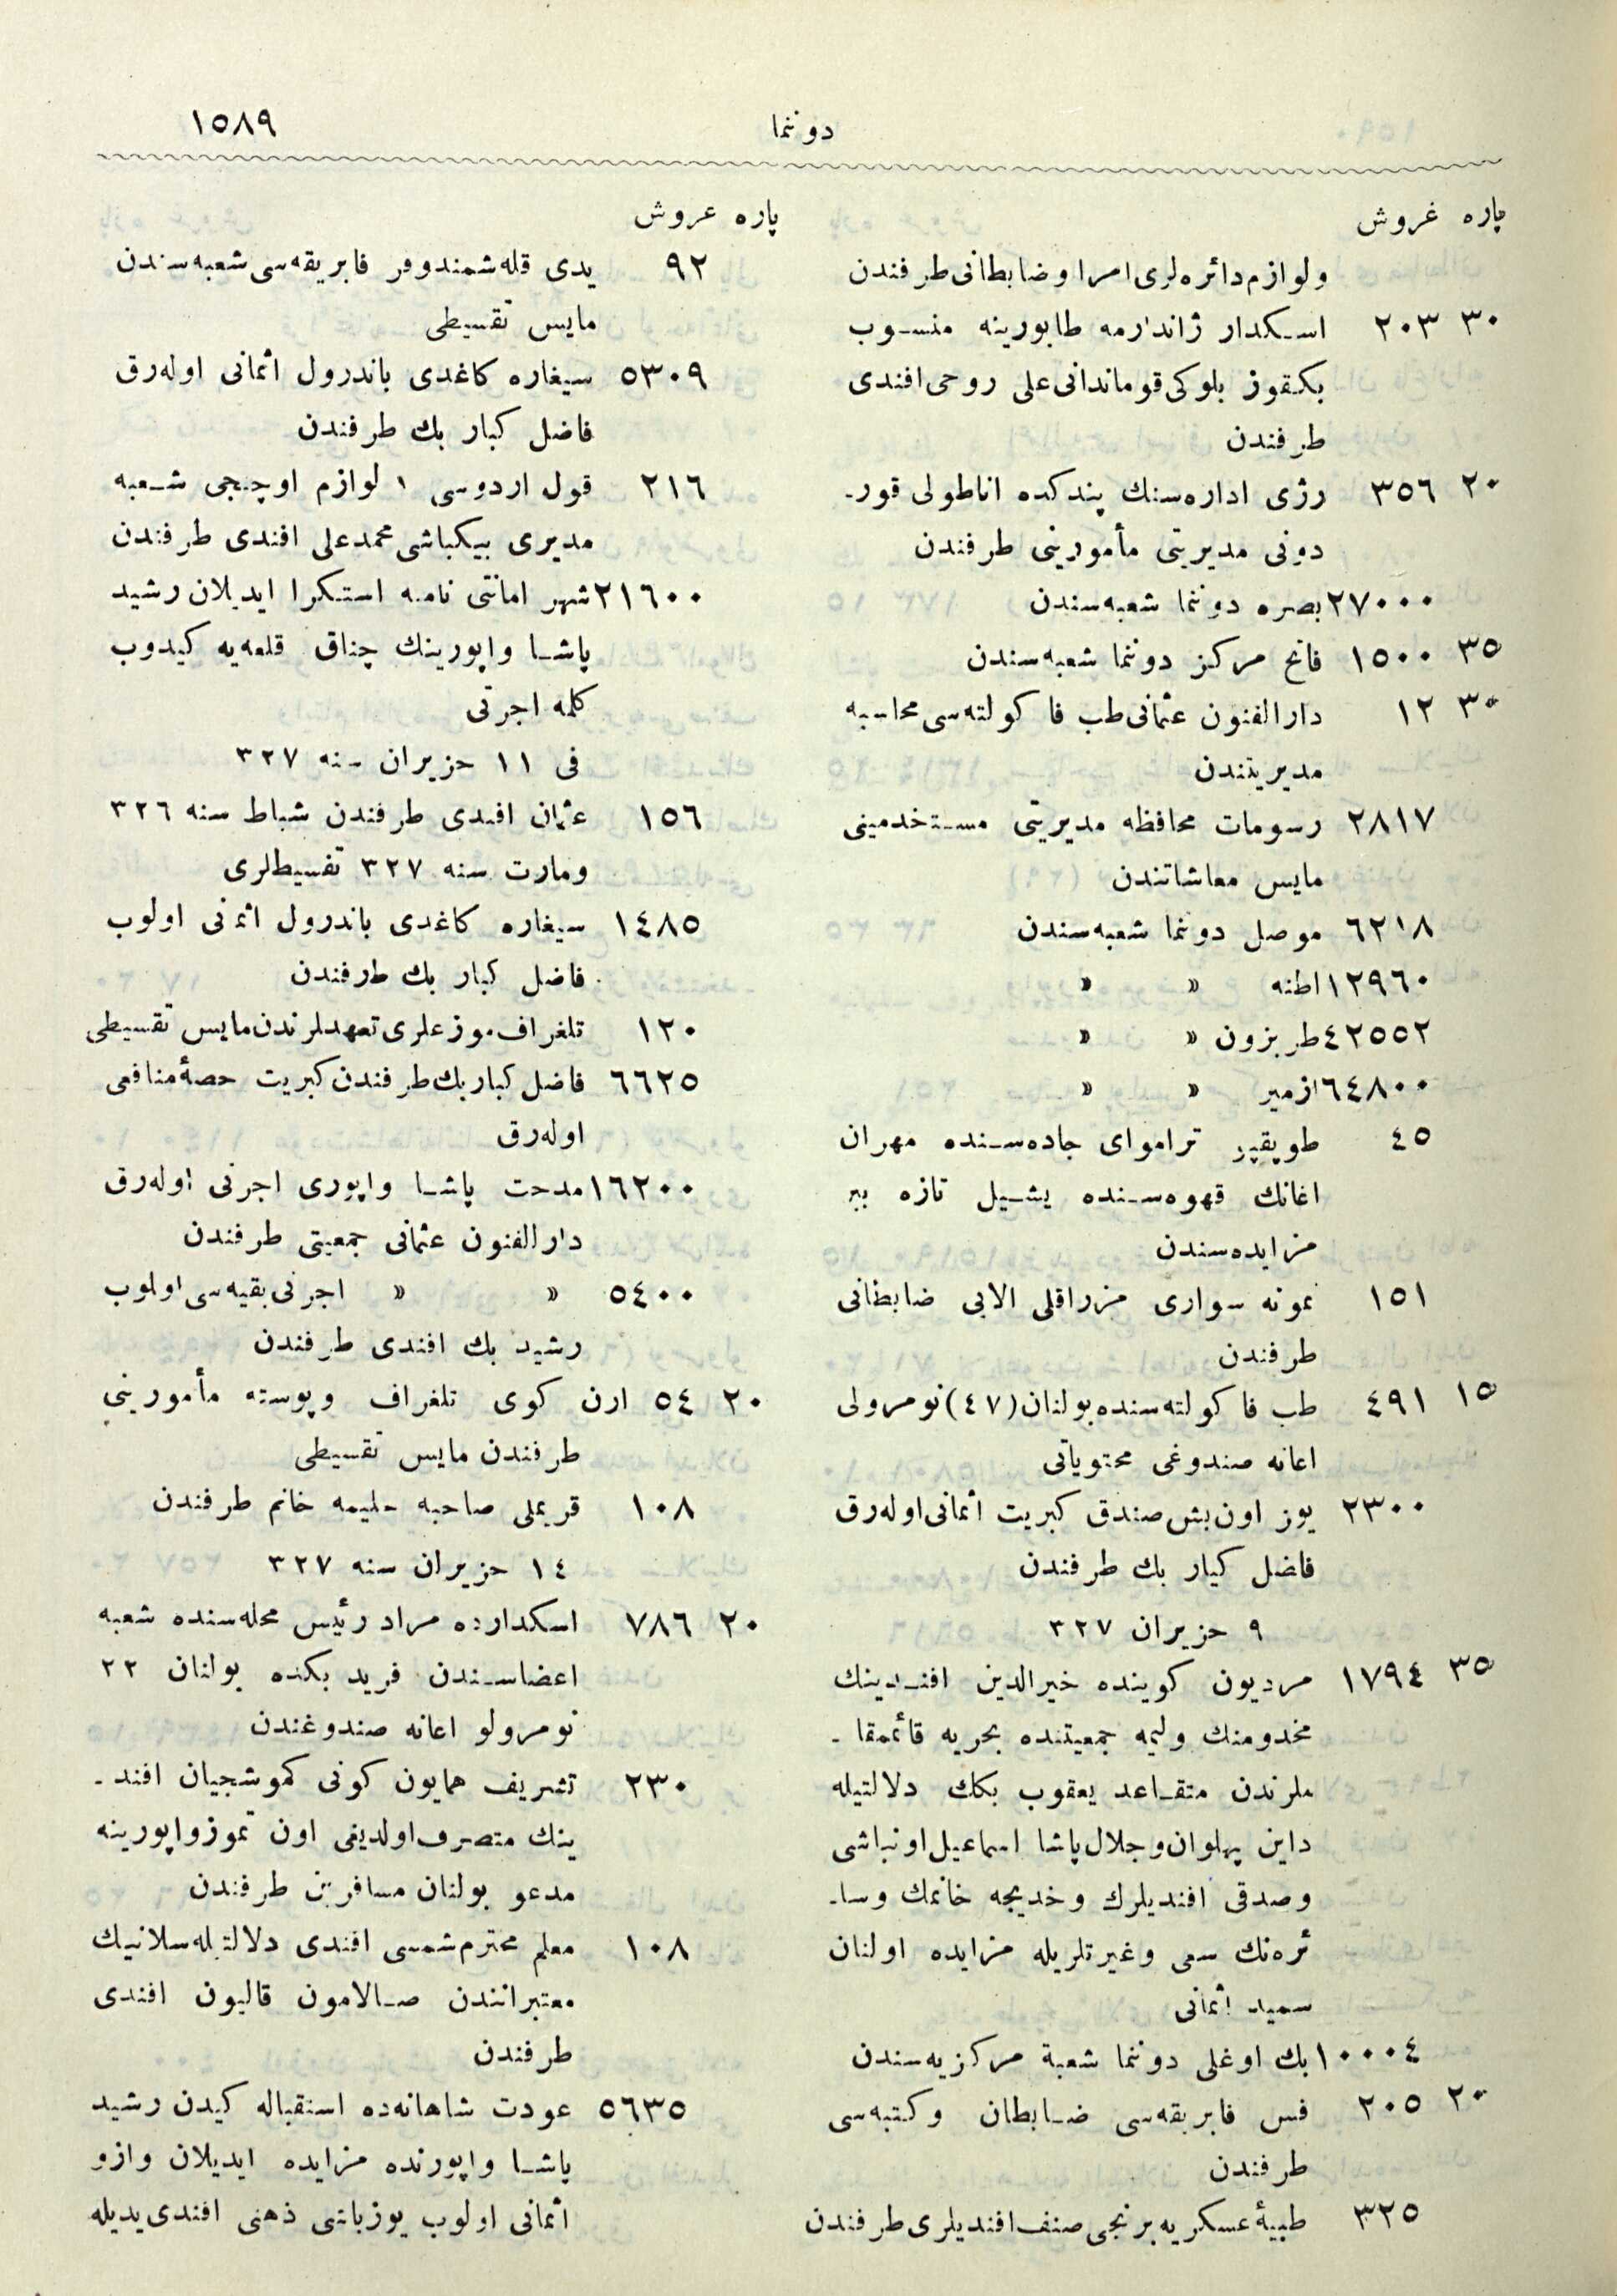 ١٥٨٩
دوننما
پاره غروش
ولوازم دائره‌لرى امرا وضابطانى طرفندن
٣٠ ٢٠٣ اسكدار ژاندارمه طابورينه منسوب
بكقوز بلوكى قوماندانى على روحى افندى
طرفندن
٢٠ ٣٥٦ رژى اداره‌سنك پندكده اناطولى قور-
دونى مديريتى مأمورينى طرفندن
٢٧٠٠٠ بصره دوننما شعبه‌سندن
٣٥ ١٥٠٠ فاتح مركز دوننما شعبه‌سندن
٣٠ ١٢ دارالفنون عثمانى طب فاكولته‌سى محاسبه
مديريتندن
٢٨١٧ رسومات محافظه مديريتى مستخدمينى
مايس معاشاتندن
٦٢١٨ موصل دوننما شعبه‌سندن
١٢٩٦٠ اطنه » »
٤٢٥٥٢ طربزون » »
٦٤٨٠٠ ازمير » »
٤٥ طوپقپو تراموای جاده‌سنده مهران
اغانك قهوه‌سنده يشيل تازه ببر
مزايده‌سندن
١٥١ نمونه سوارى مزراقلى الايى ضابطانى
طرفندن
١٥ ٤٩١ طب فاكولته‌سنده بولنان (٤٧) نومرولى
اعانه صندوغى محتوياتى
٢٣٠٠ يوز اون بش صندق كبريت اثمانى اوله‌رق
فاضل كبار بك طرفندن
٩ حزيران ٣٢٧
٣٥ ١٧٩٤ مرديون كوينده خيرالدين افندينك
مخدومنك وليمه جمعيتنده بحريه قائمقا-
ملرندن متقاعد يعقوب بكك دلالتيله
داين پهلوان وجلال پاشا اسماعيل اونباشى
وصدقى افنديلرك وخديجه خانمك وسا-
ئره‌نك سعى وغيرتلريله مزايده اولنان
سميد اثمانى
١٠٠٠٤ بك اوغلى دوننما شعبۀ مركزيه‌سندن
٢٠ ٢٠٥ فس فابريقه‌سى ضابطان وكتبه‌سى
طرفندن
٣٢٥ طبيۀ عسكريه برنجى صنف افنديلرى طرفندن
پاره عروش
٩٢ يدى قله شمندوفر فابريقه‌سى شعبه‌سندن
مايس تقسيطى
٥٣٠٩ سيغاره كاغدى باندرول اثمانى اوله‌رق
فاضل كبار بك طرفندن
٢١٦ قول اردوسى ١ لوازم اوچنجى شعبه
مديرى بيكباشى محمد على افندى طرفندن
٢١٦٠٠ شهر امانتى نامه استكرا ايديلان رشيد
پاشا واپورينك چناق قلعه‌يه كيدوب
كلمه اجرتى
فى ١١ حزيران سنه ٣٢٧
١٥٦ عثمان افندى طرفندن شباط سنه ٣٢٦
ومارت سنه ٣٢٧ تقسيطلرى
١٤٨٥ سيغاره كاغدى باندرول اثمنى اولوب
فاضل كبار بك طرفندن
١٢٠ تلغراف موزعلرى تعهدلرندن مايس تقسيطى
٦٦٢٥ فاضل كبار بك طرفندن كبريت حصۀ منافعى
اوله‌رق
١٦٢٠٠ مدحت پاشا واپورى اجرتى اوله‌رق
دارالفنون عثمانى جمعيتى طرفندن
٥٤٠٠ » » اجرتى بقيه‌سى اولوب
رشيد بك افندى طرفندن
٢٠ ٥٤ ارن كوى تلغراف وپوسته مأمورينى
طرفندن مايس تقسيطى
١٠٨ قريملى صاحبه حليمه خانم طرفندن
١٤ حزيران سنه ٣٢٧
٢٠ ٧٨٦ اسكدارده مراد رئيس محله‌سنده شعبه
اعضاسندن فريد بكده بولنان ٢٢
نومرولو اعانه صندوغندن
٢٣٠ تشريف همايون كونى كموشجيان افند-
ينك متصرف اولديغى اون تموز واپورينه
مدعو بولنان مسافرين طرفندن
١٠٨ معلم محترم شمسى افندى دلالتيله سلانيك
معتبراتندن صالامون قاليون افندى
طرفندن
٥٦٣٥ عودت شاهانه‌ده استقباله كيدن رشيد
پاشا واپورنده مزايده ايديلان وازو
اثمانى اولوب يوزباشى ذهنى افندى يديله